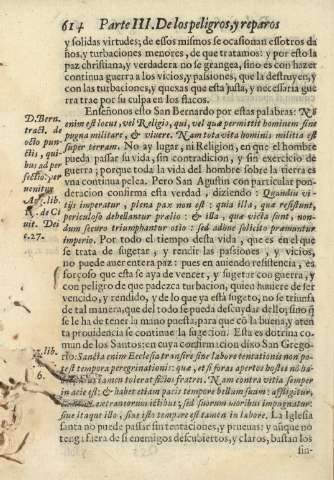 614 Parte III. De los peligros, y reparos
y solidas virtudes; de essos mismos se ocasionan essotros da
ños, y turbaciones menores, de que tratamos: y por esto la
paz christiana, y verdadera no se grangea, sino es con hazer
continua guerra a los vicios, y pasiones, que la destruyen, y
con las turbaciones, y quexas que esta justa, y necessaria gue
rra trae por su culpa en los flacos.
Enseñonos esto San Bernardo por estas palabras: No
enim est locus, vel Religio, qui, vel quæ permittit hominem sine
pugna militare, & vivere. Nam tota vita hominis militia est
super terram. No ay lugar, ni Religion, en que el hombre
pueda passar su vida, sin contradicion, y sin exercicio de
guerra; porque toda la vida del hombre sobre la tierra es
vna continua pelea. Pero San Agustin con particular pon-
deracion confirma esta verdad, diziendo: Quandiu vi
tijs imperatur, plena pax non est: quia illa, quæ resistunt,
periculoso debellantur prælio: & illa, quæ victa sunt, non-
dum securo triumphantur otio: sed adhuc solicito præmuntur
imperio. Por todo el tiempo desta vida, que es en el que
se trata de sugetar, y rendir las passiones, y vicios,
no puede auer entera paz: pues en auiendo resistencia, es
forçoso que esta se aya de vencer, y sugetar con guerra, y
con peligro de que padezca turbacion, quien huviere de ser
vencido, y rendido, y de lo que ya está sugeto, no se triunfa
de tal manera, que del todo se pueda descuydar dello; sino q̃
se le ha de tener la mano puesta, para que cõ la buena, y aten
ta prouidencia se continue la sugecion. Esta es dotrina co-
mun de los Santos: en cuya confirmacion dixo San Grego-
rio: Sancta enim Ecclesia transire sine labore tentationis non po-
test tempora peregrinationis: quæ, etsi foras apertos hostes nõ ha-
tamen tolerat fictos fratres. Nam contra vitia semper
in acie est: & habet etiam pacis tempore bellum suum: affligitur,
extraneorum ictibus; sed suorum moribus impugnatur
siue itaque illo, siue isto tempore est tamen in labore. La Iglesia
santa no puede passar sin tentaciones, y prueuas: y aunque no
tenga fuera de si enemigos descubiertos, y claros, bastan los
sin-
D. Bern.
tract. de
octo pun-
ctis, qui-
bus ad per
fectio. per
venitur
Aug. lib.
de Ci
uit. Dei
c. 27.
lib.
6.